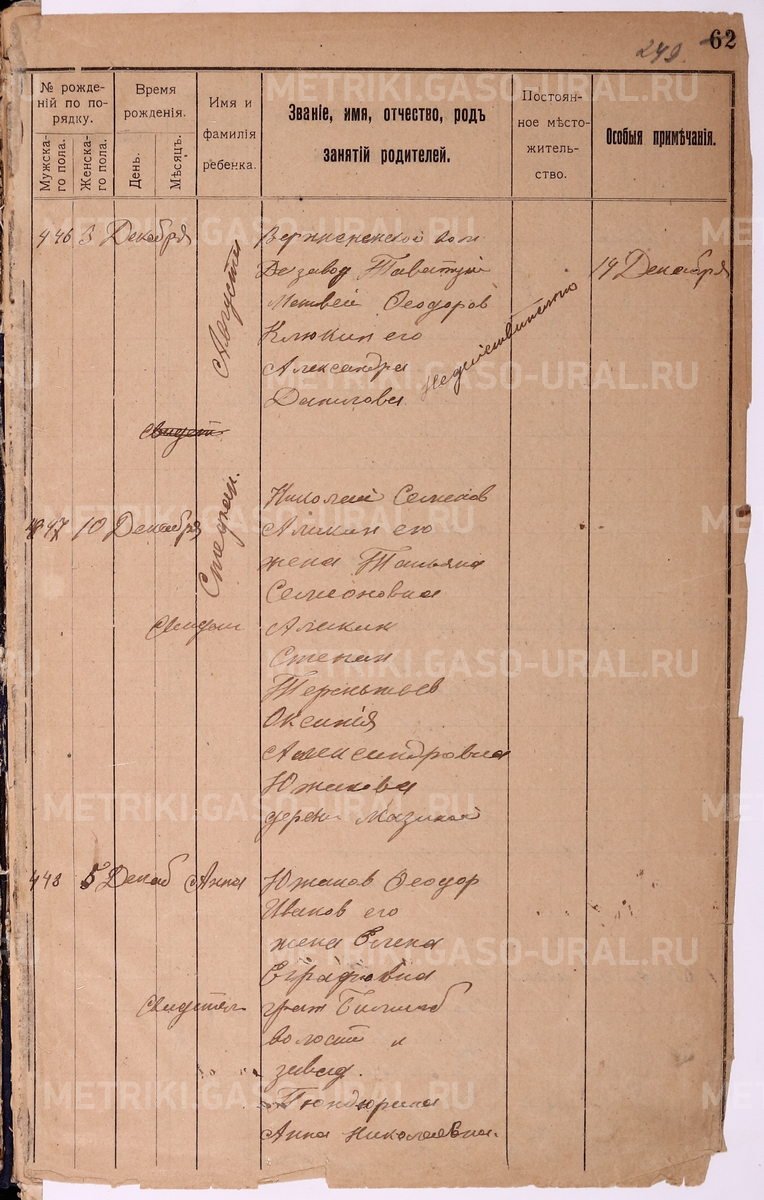 249 62
№ рожде-
ній по по-
рядку.
Мужска-
го пола.
Женска-
го пола.
Время
рожденія.
День.
Мѣсяцъ.
Имя и
фамилія
ребенка.
Званіе, имя, отчество, родъ
занятій родителей.
Постоян-
ное мѣсто-
житель-
ство.
Особыя примѣчанія.
446 3 Декабря
Августа
вол
завод
Матвей Феодоров
Клюкин его
Александра
Данилова
недействительно
14 Декабря
свидет
447 10 Декабря
Степан.
Николай Семенов
Аликин его
жена Татьяна
Семеоновна
Аликин
Степан
Терентьев
Оксинія
Александровна
Южакова
448 5 Декаб Анна
Южаков Феодор
Иванов его
жена Елена
Евграфовна
Свидетел граж Билимб
волости и
завод.
Тюндюрина
Анна Николаевна.
METRIKI.GASO-URAL.RU